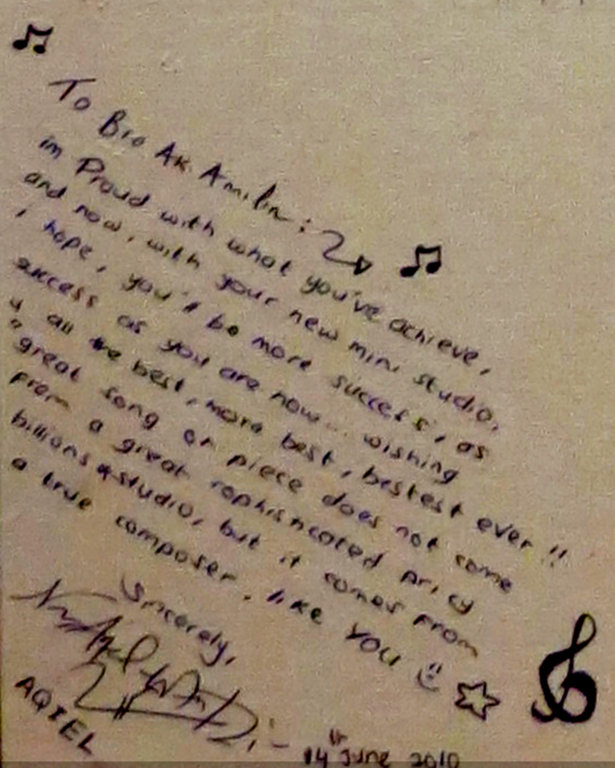 To Bro Ak. Amilin :
im Proud with what you've achieve,
and now, with your new mini studio,
i hope, you'll be more success, as
success as you are now... wishing
u all the best, more best, bestest ever !!
" great song or piece does not come
from a great sophisticated pricy
billions $ studio, but it comes from
a true composer, like YOU
Sincerely,
AQIEL
14th June 2010